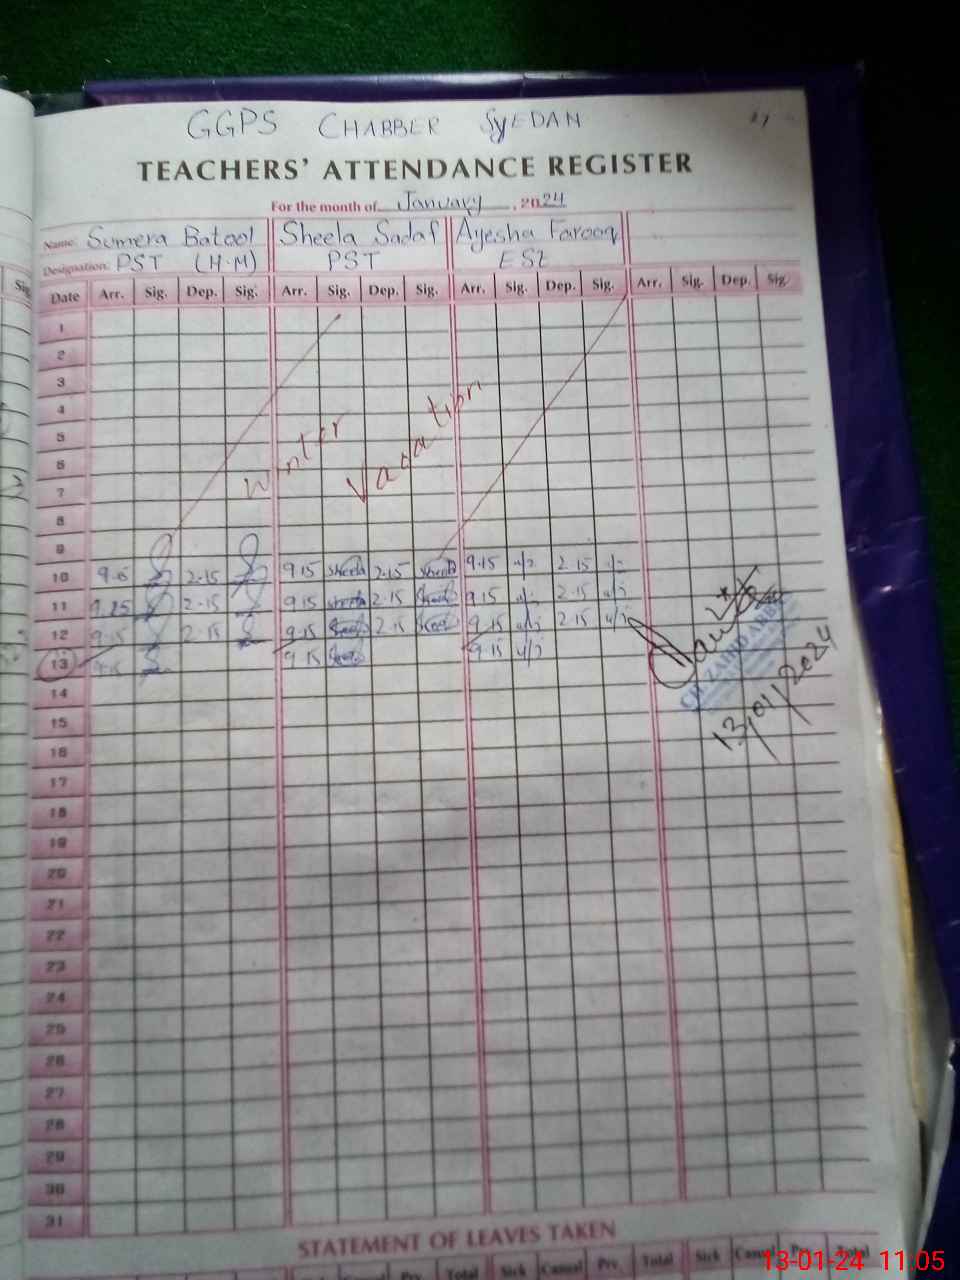 GGPS CHABBER SyEDAN
TEACHERS' ATTENDANCE REGISTER
For the month of January, 2024
Name: Sumera Batool Sheela Sadaf Ayesha Farooq
Designation: PST (H.M) PST ESE
Date Arr. Sig. Dep. Sig. Arr. Sig. Dep. Sig. Arr. Sig. Dep. Sig. Arr. Sig. Dep. Sig.
1
2
3
4
5
6
7
8
9
Winter Vacation
10 2.15 9.15 Sheela 2.15 Sheela 9.15 2.15
11 9.15 Sheela 2.15 Sheela 9.15 2.15
12 9.15 2.15 9.15 Sheela 2.15 Sheela 9.15 2.15
13 9.15 9.15 Sheela 9.15
13/01/2024
14
15
16
17
18
19
20
21
22
23
24
25
26
27
28
29
30
31
STATEMENT OF LEAVES TAKEN
Sick Casual Prv. Total Sick Casual Prv. Total
13-01-24 11:05